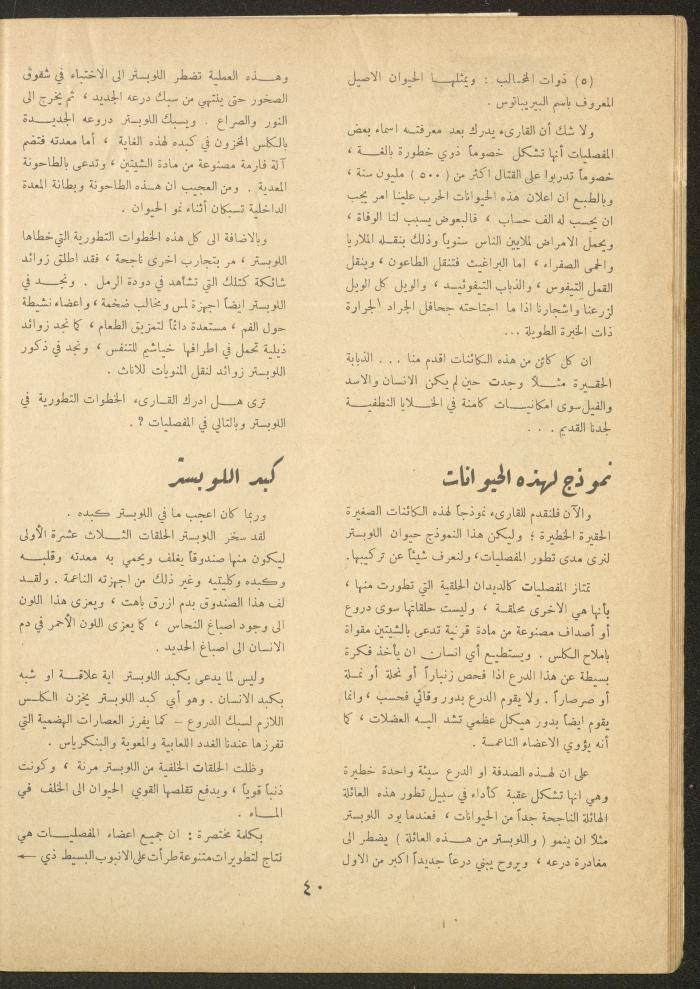 (٥) ذوات المخالب : ويمثلها الحيوان الاصيل
المعروف باسم البيريباتوس .
ولا شك أن القارىء يدرك بعد معرفته اسماء بعض
المفصليات أنها تشكل خصوماً ذوي خطورة بالغة ،
خصوماً تدربوا على القتال اكثر من (٥٠٠) مليون سنة ،
وبالطبع ان اعلان هذه الحيوانات الحرب علينا امر يجب
ان يحسب له الف حساب ، فالبعوض يسبب لنا الوفاة ،
ويحمل الامراض لملايين الناس سنوياً وذلك بنقله الملاريا
والحمى الصفراء ، اما البراغيث فتنقل الطاعون ، وينقل
القمل التيفوس ، والذباب التيفوئيد ، والويل كل الويل
لزرعنا واشجارنا اذا ما اجتاحته جحافل الجراد الجرارة
ذات الخبرة الطويلة ...
ان كل كائن من هذه الكائنات اقدم منا ... الذبابة
الحقيرة مثلاً وجدت حين لم يكن الانسان والاسد
والفيل سوى امكانيات كامنة في الخلايا النطفية
لجدنا القديم . . .
نموذج لهذه الحيوانات
والآن فلنقدم للقارىء نموذجاً لهذه الكائنات الصغيرة
الحقيرة الخطيرة ؛ وليكن هذا النموذج حيوان اللوبستر
لنرى مدى تطور المفصليات ، ولنعرف شيئاً عن تركيبها.
تمتاز المفصليات كالديدان الحلقية التي تطورت منها ،
بأنها هي الاخرى محلقة ، وليست حلقاتها سوى دروع
أو أصداف مصنوعة من مادة قرنية تدعى بالشيتين مقواة
باملاح الكلس . ويستطيع أي انسان ان يأخذ فكرة
بسيطة عن هذا الدرع اذا فحص زنباراً أو نحلة أو نملة
أو صرصاراً . ولا يقوم الدرع بدور وقائي فحسب ، وانما
يقوم ايضاً بدور هيكل عظمي تشد اليه العضلات ، كما
أنه يؤوي الاعضاء الناعمة .
على ان لهذه الصدفة او الدرع سيئة واحدة خطيرة
وهي انها تشكل عقبة كأداء في سبيل تطور هذه العائلة
الهائلة الناجحة جداً من الحيوانات ، فعندما يود اللوبستر
مثلا ان ينمو ( واللوبستر من هذه العائلة ) يضطر الى
مغادرة درعه ، ويروح يبني درعاً جديداً اكبر من الاول
وهذه العملية تضطر اللوبستر الى الاختباء في شقوق
الصخور حتى ينتهي من سبك درعه الجديد ، ثم يخرج الى
النور والصراع . ويسبك اللوبستر دروعه الجديدة
بالكلس المخزون في كبده لهذه الغاية ، أما معدته فتضم
آلة فارمة مصنوعة من مادة الشيتين ، وتدعى بالطاحونة
المعدية . ومن العجيب ان هذه الطاحونة وبطانة المعدة
الداخلية تسبكان أثناء نمو الحيوان .
وبالاضافة الى كل هذه الخطوات التطورية التي خطاها
اللوبستر ، مر بتجارب اخرى ناجحة ، فقد اطلق زوائد
شائكة كتلك التي تشاهد في دودة الرمل . ونجد في
اللوبستر ايضاً اجهزة لمس ومخالب ضخمة ، واعضاء نشيطة
حول الفم ، مستعدة دائماً لتمزيق الطعام ، كما نجد زوائد
ذيلية تحمل في اطرافها خياشيم للتنفس ، ونجد في ذكور
اللوبستر زوائد لنقل المنويات للاناث .
ترى هل ادرك القارىء الخطوات التطورية في
اللوبستر وبالتالي في المفصليات ؟ .
كبد اللوبستر
وربما كان اعجب ما في اللوبستر كبده .
لقد سخر اللوبستر الحلقات الثلاث عشرة الأولى
ليكون منها صندوقاً يغلف ويحمي به معدته وقلبه
وكبده وكليتيه وغير ذلك من اجهزته الناعمة . ولقد
لف هذا الصندوق بدم ازرق باهت ، ويعزى هذا اللون
الى وجود اصباغ النحاس ، كما يعزى اللون الأحمر في دم
الانسان الى اصباغ الحديد .
وليس لما يدعى بكبد اللوبستر اية علاقة او شبه
بكبد الانسان . وهو أي كبد اللوبستر يخزن الكلس
اللازم لسبك الدروع – كما يفرز العصارات الهضمية التي
تفرزها عندنا الغدد اللعابية والمعوية والبنكرياس .
وظلت الحلقات الخلفية من اللوبستر مرنة ، وكونت
ذنباً قوياً ، ويدفع تقلصها القوي الحيوان الى الخلف في
الماء .
بكلمة مختصرة : ان جميع اعضاء المفصليات هي
نتاج لتطويرات متنوعة طرأت على الانبوب البسيط ذي ←
٤٠